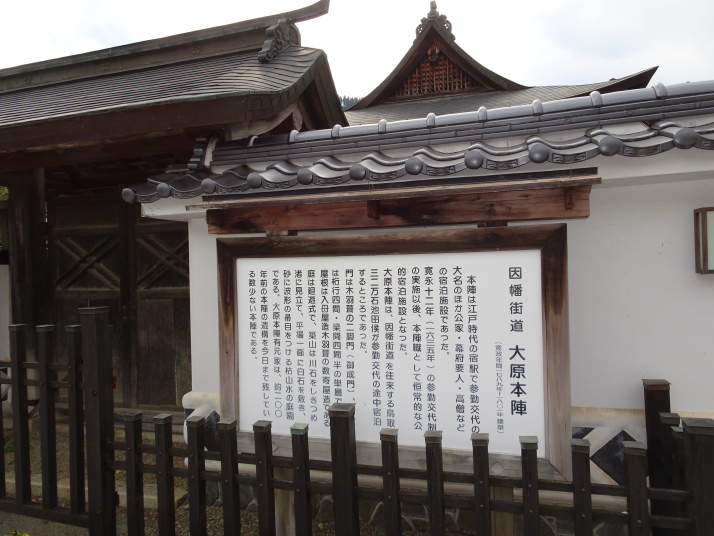 因幡街道 大原本陣
(寛政年間一七八九年~一八〇一年建築)
本陣は江戸時代の宿駅で参勤交代の
大名のほか公家・幕府要人・高僧など
の宿泊施設であった。
寛永十二年(一六三五年)の参勤交代制
の実施以後、本陣職として恒常的な公
的宿泊施設となった。
大原本陣は、因幡街道を往来する鳥取
三二万石池田侯が参勤交代の途中宿泊
するところであった。
門は木羽葺の二脚門(御成門)、
は桁行四間、梁間四間半の単層で
屋根は入母屋造木羽葺の数寄屋造である
庭は廻遊式で、築山は川石をしきつめ
渚に見立て、平場一面に白石を敷き、
砂に波形の帚目をつける枯山水の庭園
である。大原本陣有元家は、約二〇〇
年前の本陣の遺構を今日まで残してい
る数少ない本陣である。